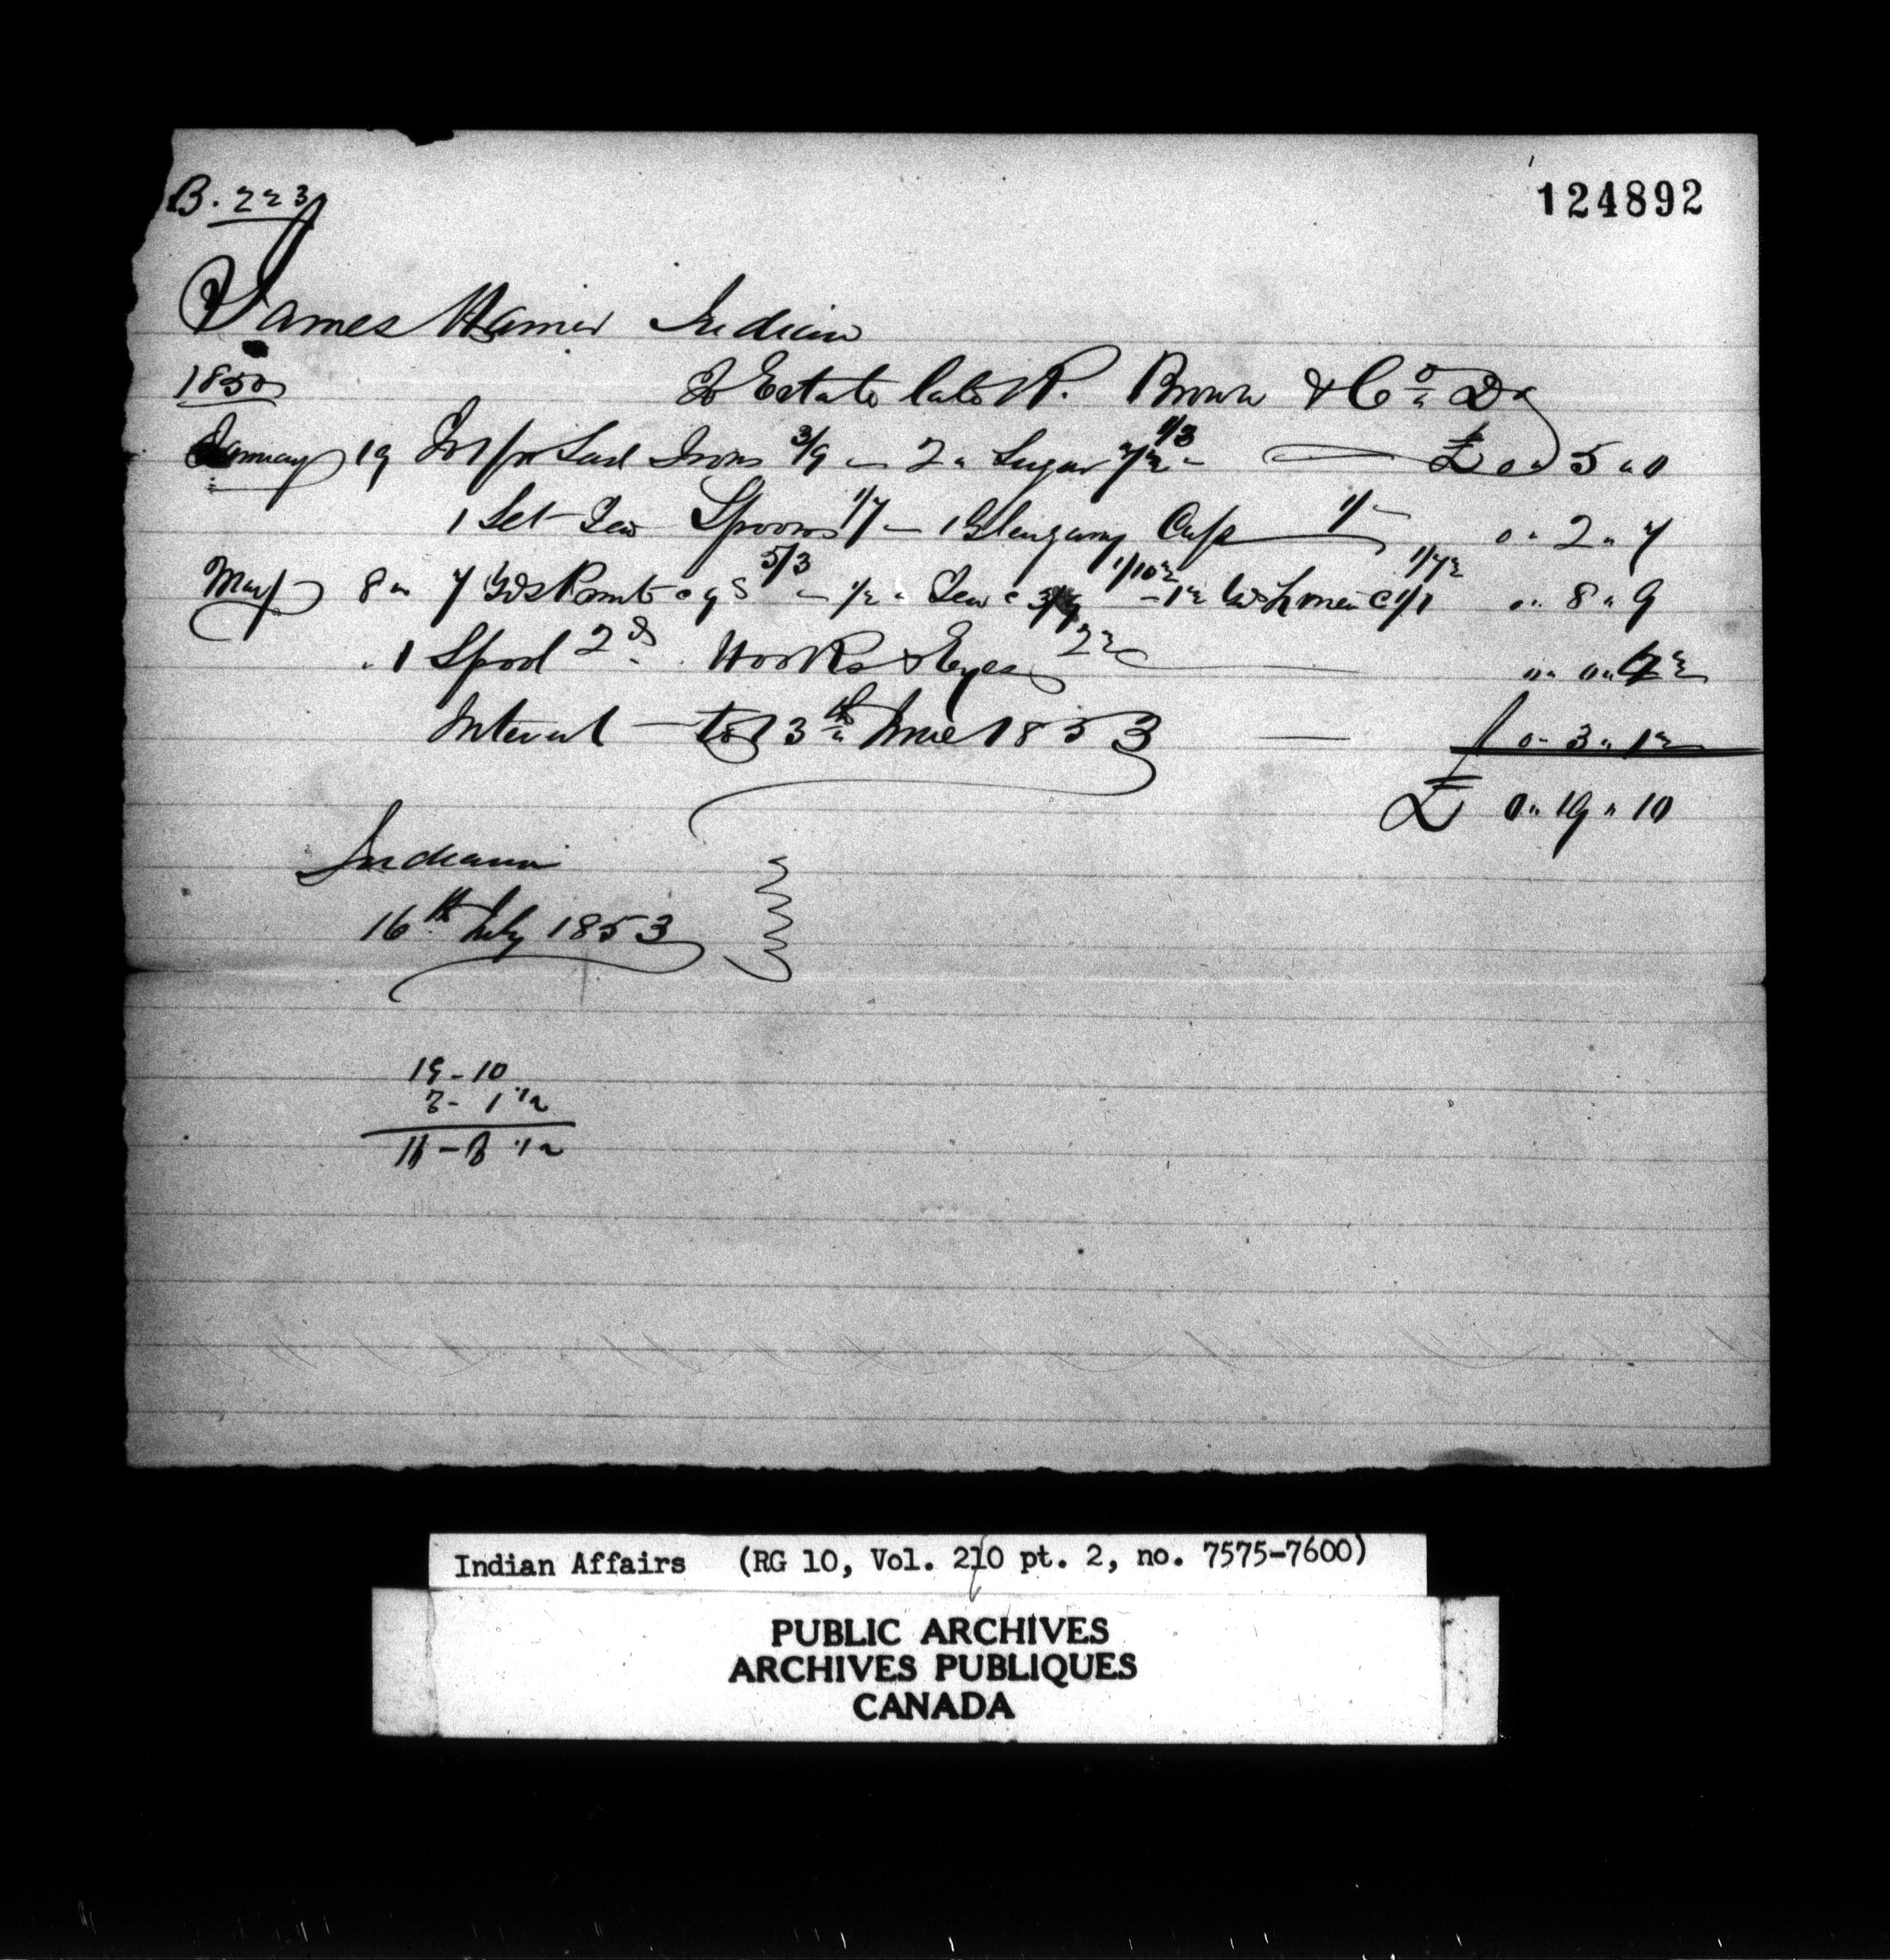 B. 223
124892
James Indian
1850 To Estate late R. Brown & Co Dr
January 19 To 1 pr Sad Irons 3/9 — 2 " Sugar 7½ 1/3 — £ 0 " 5 " 0
1 Set Tea Spoons 1/7 — 1 Glengarry Cap 1/- 0 " 2 " 7
May 8 " 7 Yds Print @ 9d 5/3 — ½ " Tea @ 3/9 1/10½ — 1½ Yds @ 1/1 1/7½ " " 8 " 9
" 1 Spool 2d . Hooks & Eyes 2½ " " 0 "
Interest — to 13th June 1853 — 0 " 3 " 1½
£ 0 " 19 " 10
Indiana
16th July 1853
19 - 10
3 - 1 1/2
1/2
Indian Affairs (RG 10, Vol. 210 pt. 2, no. 7575-7600)
PUBLIC ARCHIVES
ARCHIVES PUBLIQUES
CANADA